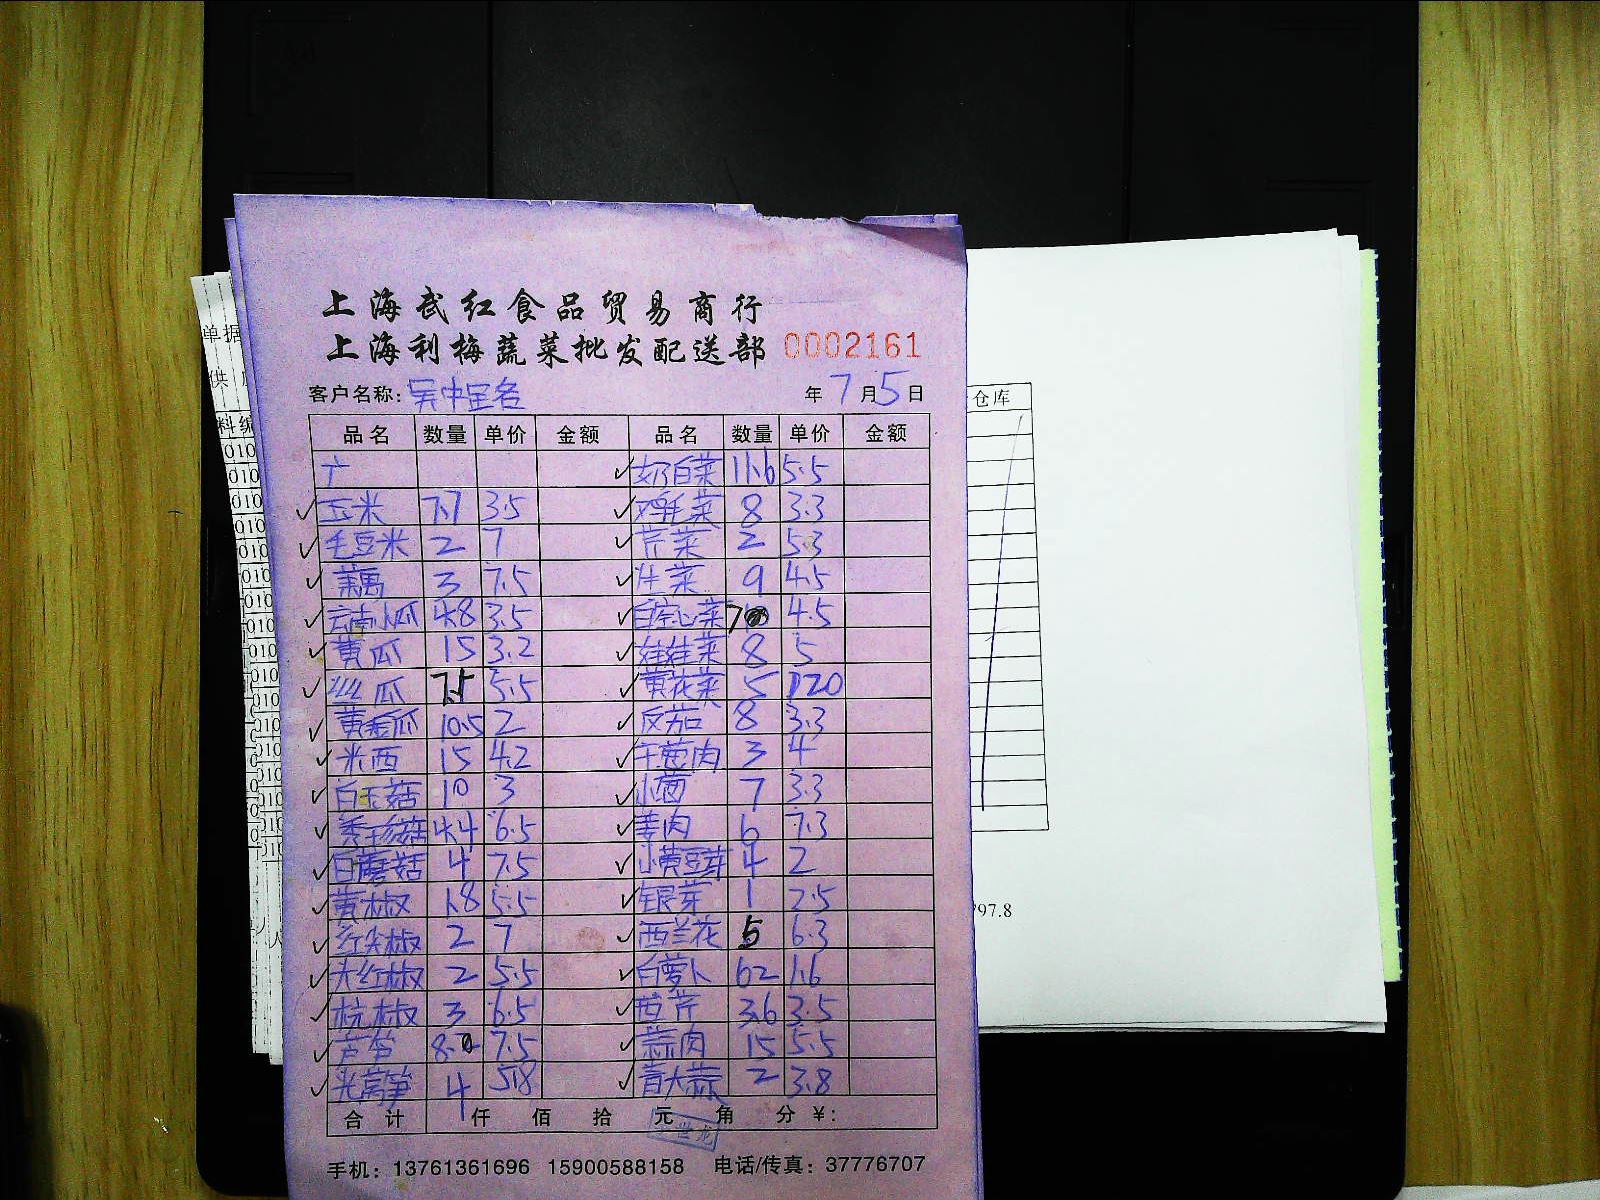 上海武红食品贸易商行
上海利梅蔬菜批发配送部 0002161
客户名称: 吴中 年 7 月 5 日
品名 数量 单价 金额 品名 数量 单价 金额
奶白菜 11.6 5.5
玉米 7.7 3.5 鸡毛菜 8 3.3
毛豆米 2 7 芹菜 2 5.3
藕 3 7.5 生菜 9 4.5
云南小瓜 4.8 3.5 白空心菜 7 4.5
黄瓜 15 3.2 娃娃菜 8 5
丝瓜 7.5 5.5 黄花菜 5 20
黄金瓜 10.5 2 反茄 8 3.3
米西 15 4.2 干葱肉 3 4
白玉菇 10 3 小葱 7 3.3
秀珍菇 4.4 6.5 姜肉 6 7.3
白蘑菇 4 7.5 小黄豆芽 4 2
黄椒 1.8 5.5 银芽 1 2.5
红尖椒 2 7 西兰花 5 6.3
大红椒 2 5.5 白萝卜 62 1.6
杭椒 3 6.5 西芹 3.6 3.5
芦笋 7.5 蒜肉 15 5.5
光莴笋 4 5.8 青大蒜 2 3.8
合计 仟 佰 拾 元 角 分 ¥:
手机: 13761361696 15900588158 电话/传真: 37776707
单据
供
料编
仓库
797.8